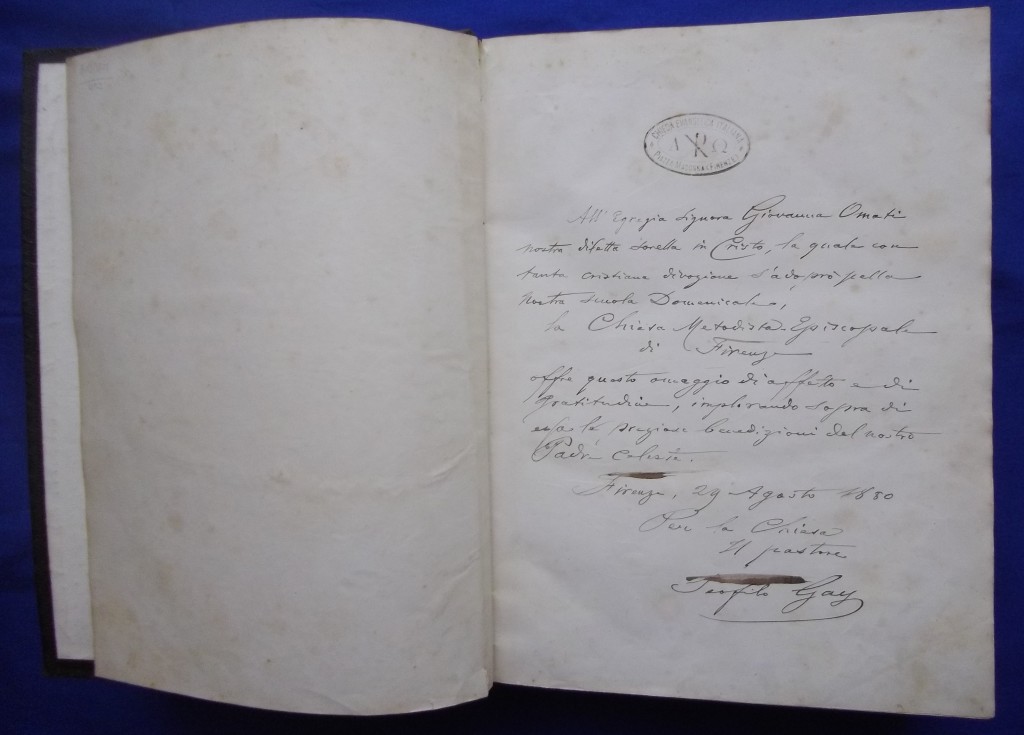 CHIESA EVANGELICA ITALIANA
Α Ω
All' Egregia Signora Giovanna Omati
nostra diletta sorella in Cristo, la quale con
tanta cristiana divozione s'adoprò nella
nostra Scuola Domenicale,
la Chiesa Metodista Episcopale
di Firenze
offre questo omaggio di affetto e di
gratitudine, implorando sopra di
essa le preziose benedizioni del nostro
Padre Celeste.
Firenze, 29 Agosto 1880
Per la Chiesa
Il pastore
Teofilo Gay